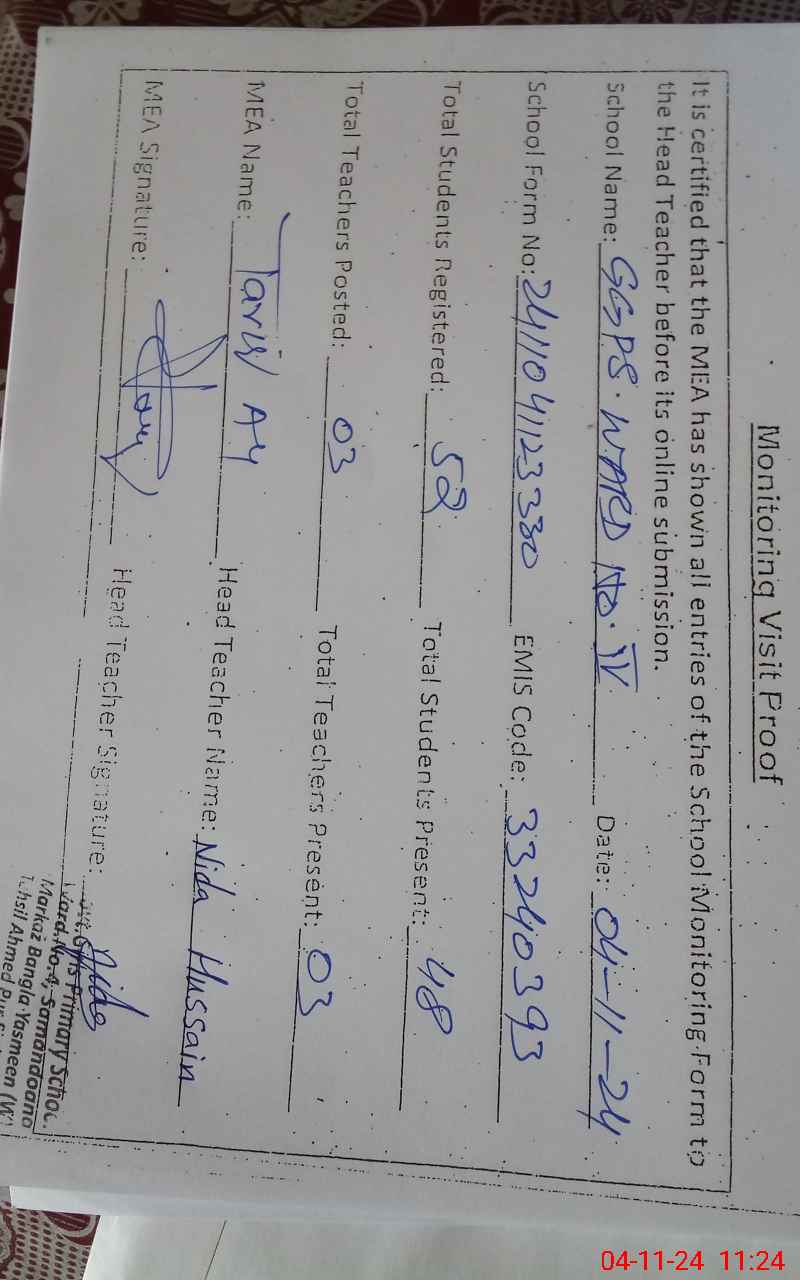 Monitoring Visit Proof
It is certified that the MEA has shown all entries of the School Monitoring Form to
the Head Teacher before its online submission.
School Name: GGPS. WARD No. IV Date: 04-11-24
School Form No: 2411041123330 EMIS Code: 33240393
Total Students Registered: 52 Total Students Present: 48
Total Teachers Posted: 03 Total Teachers Present: 03
MEA Name: Head Teacher Name: Nida Hussain
MEA Signature: Head Teacher Signature: Nida
Primary School
Ward No 4, Samandoana
Markaz Bangla Yasmeen (W
Tehsil Ahmed Pur
04-11-24 11:24